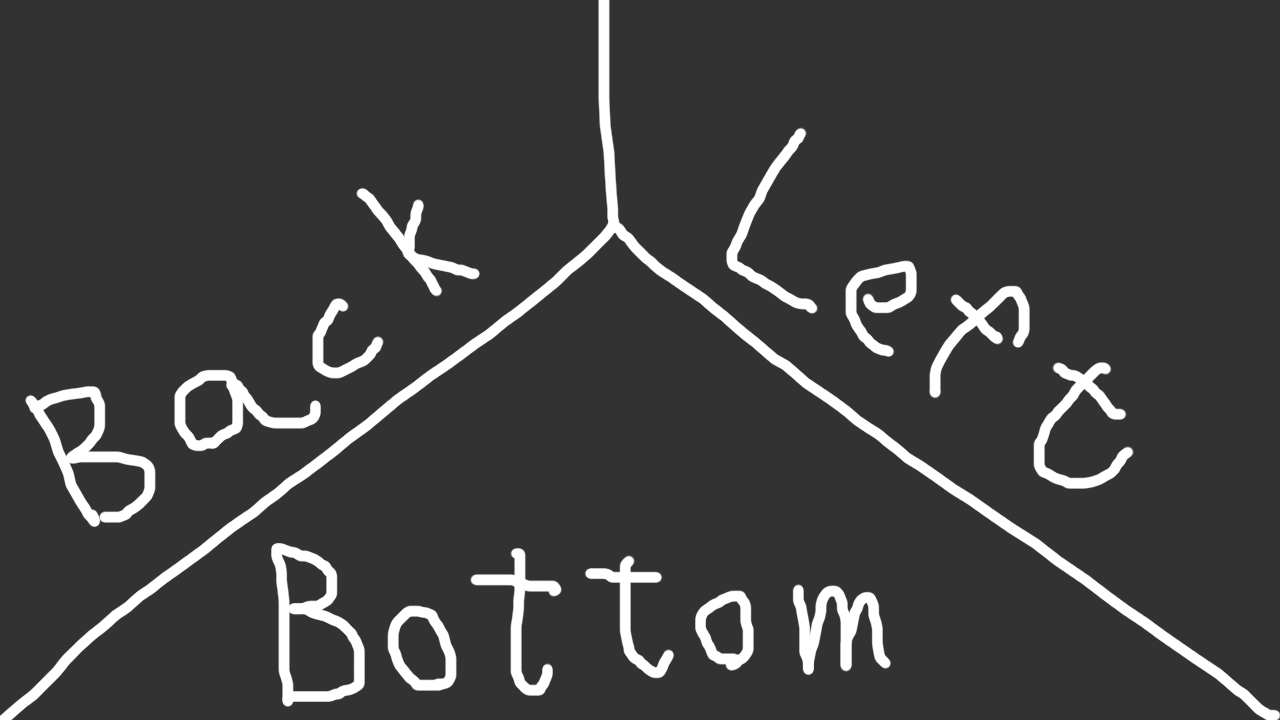 Back
Left
Bottom